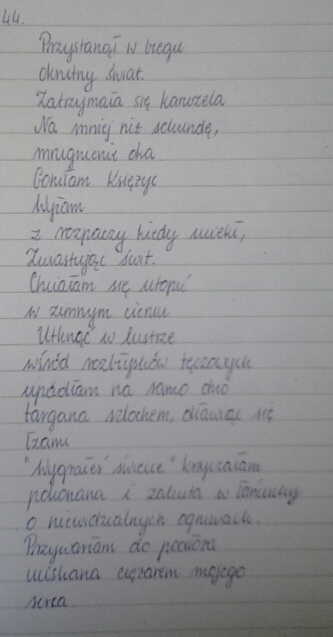 44.
Przystanął w biegu
okrutny świat.
Zatrzymała się karuzela
Na mniej niż sekundę,
mrugnienie oka.
Goniłam Księżyc
Wyłam
z rozpaczy kiedy uciekł,
Zwiastując świt.
Chciałam się utopić
w zimnym cieniu
Utknąć w lustrze
wśród rozbłysków tęczowych
upadłam na samo dno
targana szlochem, dławiąc się
łzami
"Wygrałeś świecie" krzyczałam
pokonana i zakuta w łańcuchy
o niewidzialnych ogniwach.
Przywarłam do podłoża
wciskana ciężarem mojego
serca.